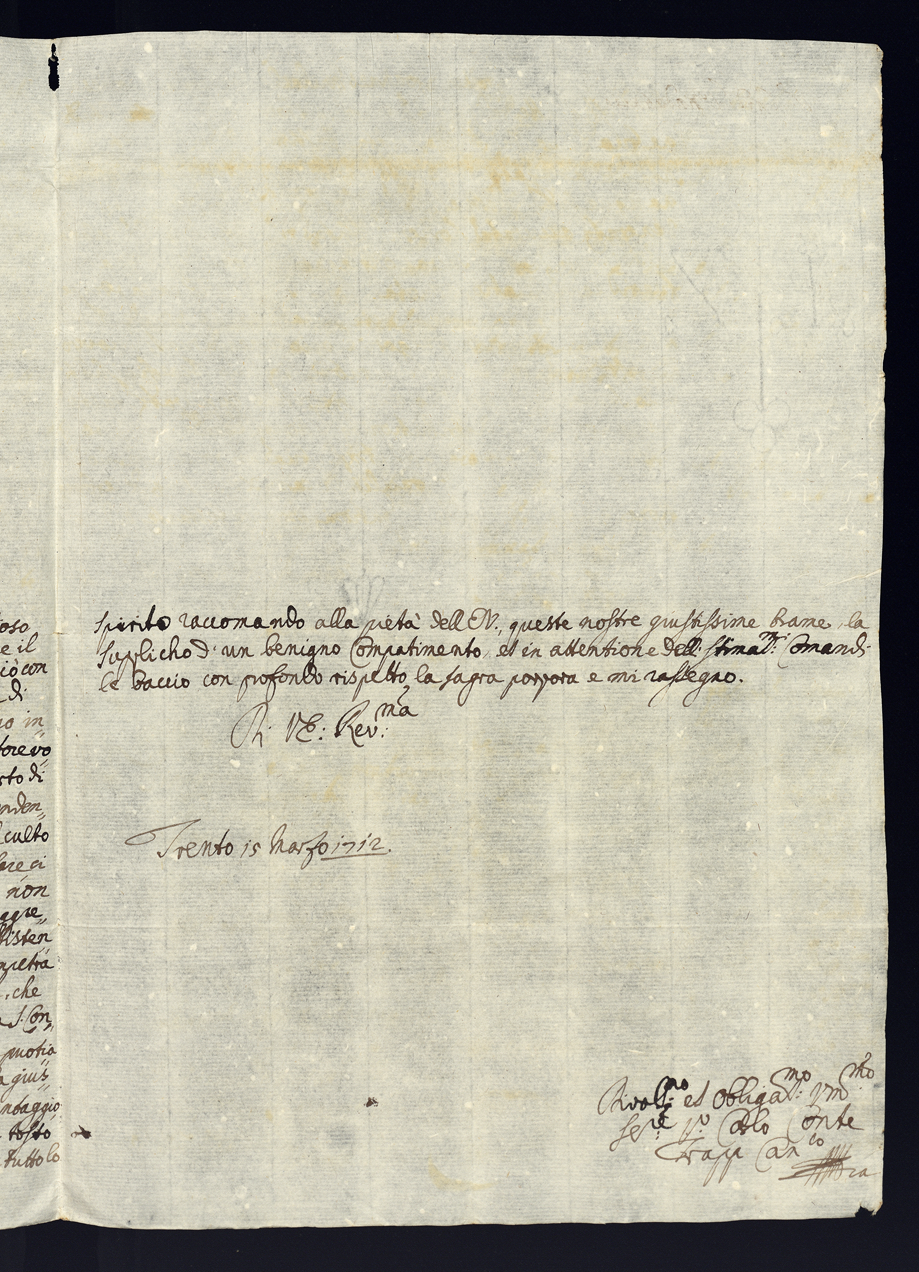 oso
e il
ciò con
di
no in
torevo
rto di
nden„
culto
lare ci
non
aggre„
sisten
mpetra
, che
a S. Con„
motio
a gius„
antaggio
tosto
tutto lo
spirito raccomando alla pietà dell'EV., queste nostre giustissime brame, la
supplicho d'un benigno Compatimento, et in attentione delli stimat.mi Comandi
le baccio con profondo rispetto la sagra porpora e mi rassegno.
Di V.E: Rev.ma
Trento 15 Marzo 1712.
Divot.mo et obligat.mo
Ser.e Carlo Conte
Trapp Can.co